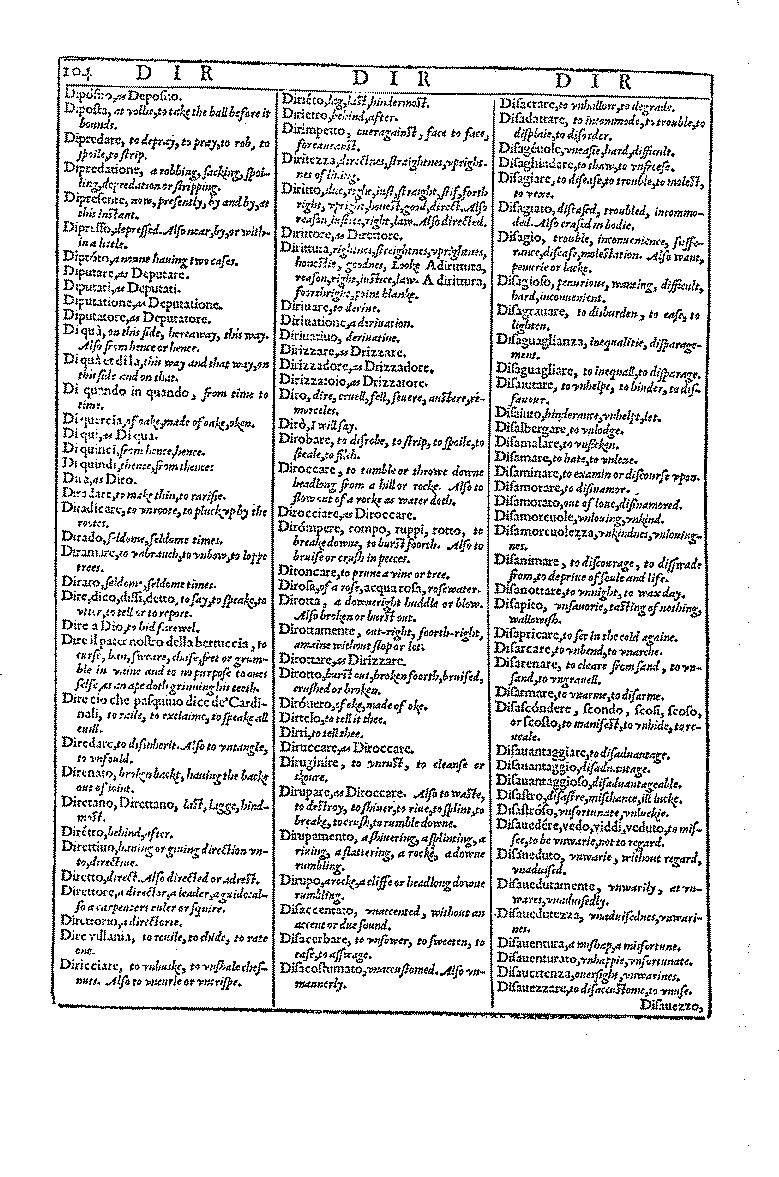 104 D I R D I R D I R
Diposito, as Deposito.
Diposta, at vollie, to take the ball before it
bounds.
Dipredare, to depray, to pray, to rob, to
spoile, to strip.
Dipredatione, a robbing, sacking, spoi-
ling, depredation or stripping.
Dipresente, now, presently, by and by, at
this instant.
Dipresso, depressed. Also near, by, or with-
in a little.
Diptóto, a noune having two cases.
Diputare, as Deputare.
Diputati, as Deputati.
Diputatione, as Deputatione.
Diputatore, as Deputatore.
Di quà, on this side, hereaway, this way.
Also from hence or hence.
Di quà et di là, this way and that way, on
this side and on that.
Di quando in quando, from time to
time.
Di quercia, of oake, made of oake, oken.
Di qui, as Di qua.
Di quinci, from hence, hence.
Di quindi, thence, from thence.
Dira, as Diro.
Diradare, to make thin, to rarifie.
Diradicare, to vnroote, to pluck vp by the
rootes.
Dirado, seldome, seldome times.
Diramare, to vnbrauch, to vnbow, to loppe
trees.
Dirato, seldome, seldome times.
Dire, dico, dissi, detto, to say, to speake, to
vtter, to tell or to report.
Dire a Dio, to bid farewel.
Dire il pater nostro della bertuccia, to
curse, ban, sweare, chase, fret or grum-
ble in vaine and to no purpose to ones
selfe, as an ape doth grinning his teeth.
Dire ciò che pasquino dice de' Cardi-
nali, to raile, to exclaime, to speake all
euill.
Diredare, to disinherit. Also to vntangle,
to vnfould.
Direnato, broken backt, hauing the backe
out of ioint.
Diretano, Direttano, last, lagge, hind-
most.
Diréto, behind, after.
Direttiuo, hauing or giuing direction vn-
to, directiue.
Diretto, direct. Also directed or adrest.
Direttore, a director, a leader, a guide, al-
so a carpenters ruler or squire.
Direttorio, a directorie.
Dire villania, to reuile, to chide, to rate
one.
Diricciare, to vnhuske, to vnshale ches-
nuts. Also to vncurle or vncrispe.
Diriéto, lag, last, hindermost.
Dirietro, behind, after.
Dirimpetto, oueragainst, face to face,
foreanenst.
Diritezza, directnes, straightnes, vpright-
nes of liuing.
Diritto, due, right, iust, straight, stif, forth
right, vpright, honest, good, direct. Also
reason, iustice, right, law. Also directed.
Dirittore, as Direttore.
Dirittura, rightnes, streightnes, vprightnes,
honestie, goodnes, Looke Adirittura,
reason, right, iustice, law. A dirittura,
foorthright, point blanke.
Diriuare, to deriue.
Diriuatione, a deriuation.
Diriuatiuo, deriuatiue.
Dirizzare, as Drizzare.
Dirizzadore, as Drizzadore.
Dirizzatoio, as Drizzatore.
Diro, dire, cruell, fell, seuere, austere, re-
morceles.
Dirò, I will say.
Dirobare, to disrobe, to strip, to spoile, to
steale, to filch.
Diroccare, to tumble or throw downe
headlong from a hill or rocke. Also to
flow out of a rocke as water doth.
Dirocciare, as Diroccare.
Dirómpere, rompo, ruppi, rotto, to
breake downe, to burst foorth. Also to
bruise or crush in peeces.
Dironcare, to prune a vine or tree.
Dirosa, of a rose, acqua rosa, rosewater.
Dirotta, a downeright huddle or blow.
Also broken or burst out.
Dirottamente, out-right, foorth-right,
amaine without stop or let.
Dirottare, as Dirizzare.
Dirotto, burst out, broken foorth, bruised,
crushed or broken.
Diróuero, of oke, made of oke.
Dirtelo, to tell it thee.
Dirti, to tell thee.
Diruccare, as Diroccare.
Diruginire, to vnrust, to cleanse or
skoure.
Dirupare, as Diroccare. Also to waste,
to destroy, to shiuer, to riue, to splint, to
breake, to crush, to rumble downe.
Dirupamento, a shiuering, a splinting, a
riuing, a flattering, a rocke, a downe
rumbling.
Dirupo, a rocke, a cliffe or headlong downe
rumbling.
Disaccentato, vnaccented, without an
accent or due sound.
Disacerbare, to vnsower, to sweeten, to
ease, to asswage.
Disacostumato, vnaccustomed. Also vn-
mannerly.
Disacrare, to vnhallow, to degrade.
Disadattare, to incommode, to trouble, to
displaie, to disorder.
Disagéuole, vneasie, hard, difficult.
Disaghiadare, to thaw, to vnfreese.
Disagiare, to disease, to trouble, to molest,
to vexe.
Disagiato, diseased, troubled, incommo-
ded. Also crased in bodie.
Disagio, trouble, inconuenience, suffe-
rance, disease, molestation. Also want,
penurie or lacke.
Disagioso, penurious, wanting, difficult,
hard, inconuenient.
Disagrauare, to disburden, to ease, to
lighten.
Disaguaglianza, inequalitie, disparage-
ment.
Disaguagliare, to inequall, to disparage.
Disaiutare, to vnhelpe, to hinder, to dis-
fauour.
Disaiuto, hinderance, vnhelpt, let.
Disalbergare, to vnlodge.
Disamalare, to vnsicken.
Disamare, to hate, to vnloue.
Disaminare, to examin or discourse vpon.
Disamorare, to disinamor.
Disamorato, out of loue, disinamored.
Disamoreuole, vnlouing, vnkind.
Disamoreuolezza, vnkindnes, vnlouing-
nes.
Disanimare, to discourage, to disswade
from, to depriue of soule and life.
Disanottare, to vnnight, to wax day.
Disapito, vnsauorie, tasting of nothing,
wallowish.
Disapricare, to set in the cold againe.
Disarcare, to vnbend, to vnarche.
Disarenare, to cleare from sand, to vn-
sand, to vngrauell.
Disarmare, to vnarme, to disarme.
Disascóndere, scondo, scosi, scoso,
or scosto, to manifest, to vnhide, to re-
ueale.
Disauantaggiare, to disaduantage.
Disauantaggio, disaduantage.
Disauantaggioso, disaduantageable.
Disastro, disastre, mischance, ill lucke.
Disastroso, vnfortunate, vnluckie.
Disauedére, vedo, viddi, veduto, to mis-
see, to be vnwarie, not to regard.
Disaueduto, vnwarie, without regard,
vnaduised.
Disauedutamente, vnwarily, at vn-
wares, vnaduisedly.
Disauedutezza, vnaduisednes, vnwari-
nes.
Disauentura, a mishap, a misfortune.
Disauenturato, vnhappie, vnfortunate.
Disauertenza, ouersight, vnwarines.
Disauezzare, to disaccustome, to vnuse.
Disauezzo,